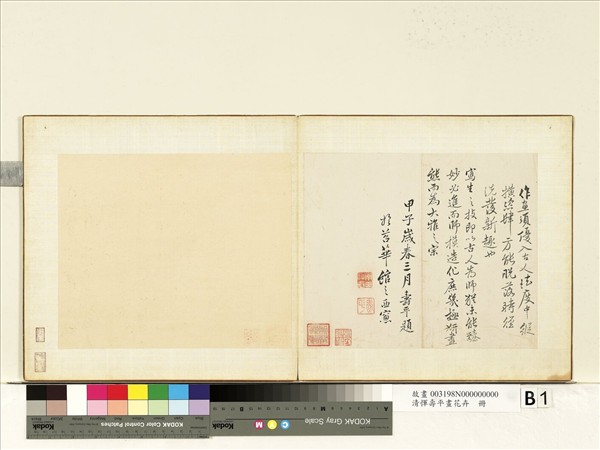 作畫須優入古人法度中縱
橫恣肆方能脫落時徑
洗發新趣也
寫生之技即以古人為師猶未能臻
妙必進而師摸造化庶幾極妍盡
態而為大雅之宗
甲子歲春三月壽平題
於苕華館之西窗
故畫 003198N000000000
清惲壽平畫花卉 冊
B 1
Kodak
KODAK Color Control Patches
KODAK Gray Scale
C
Y
M